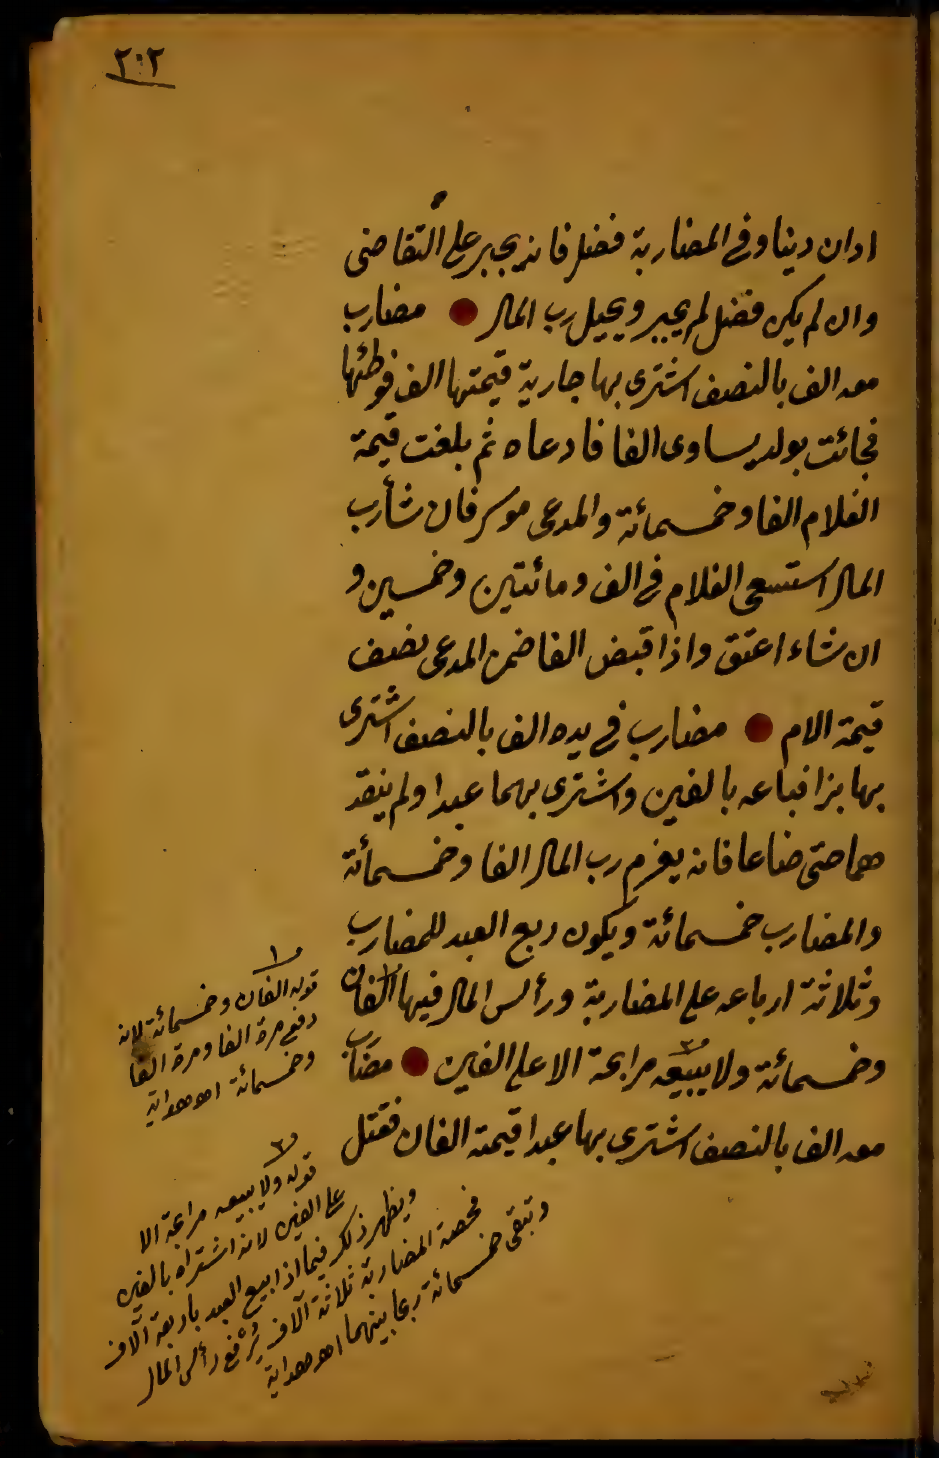 ٢٠٢
ادان دينا وفي المضاربة فضل فانه يجبر على التقاضى
وان لم يكن فضل لم يجبر ويحيل رب المال ● مضارب
معه الف بالنصف اشترى بها جارية قيمتها الف فوطئها
فجائت بولد يساوى الفا فادعاه ثم بلغت قيمة
الغلام الفا وخمسمائة والمدعى موسر فان شأ رب
المال استسعى الغلام في الف ومائتين وخمسين و
ان شاء اعتق واذا قبض الفا ضمن المدعى نصف
قيمة الام ● مضارب في يده الف بالنصف اشترى
بها بزا فباعه بالفين واشترى بهما عبدا ولم ينقد
هما حتى ضاعا فانه يغرم رب المال الفا وخمسمأئة
والمضارب خمسمائة ويكون ربع العبد للمضارب
وثلاثة ارباعه على المضاربة ورأس المال فيها الفان
وخمسمائة ولا يبيعه مرابحة الا على الفين ● مضارب
معه الف بالنصف اشترى بها عبدا قيمته الفان فقتل
١
قوله الفان وخمسمائة لانه
دفع مرة الفا ومرة الفا
وخمسمائة اهـ هداية
٢
قوله ولا يبيعه مرابحة الا
على الفين لانه اشتراه بالفين
ويظهر ذلك فيما اذا بيع العبد باربعة آلاف
فحصة المضاربة ثلاثة آلاف يُرْفع رأس المال
وتبقى خمسمائة ربحا بينهما اهـ هداية